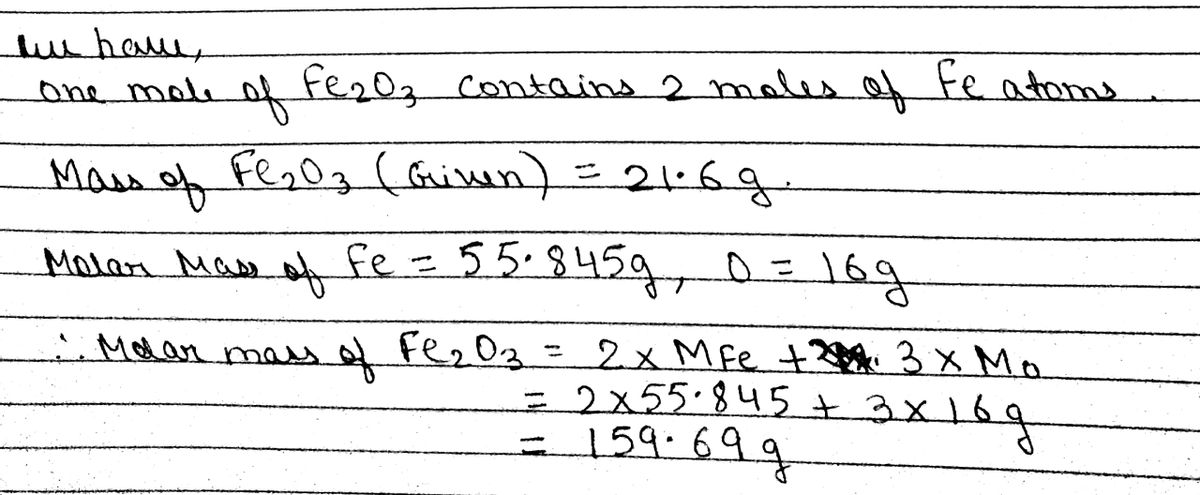 we have,
one mole of Fe2O3 contains 2 moles of Fe atoms.
Mass of Fe2O3 (Given) = 21.6 g.
Molar Mass of Fe = 55.845g, O = 16g
∴ Molar mass of Fe2O3 = 2 x MFe + 3 x Mo
= 2x55.845 + 3x16g
= 159.69 g